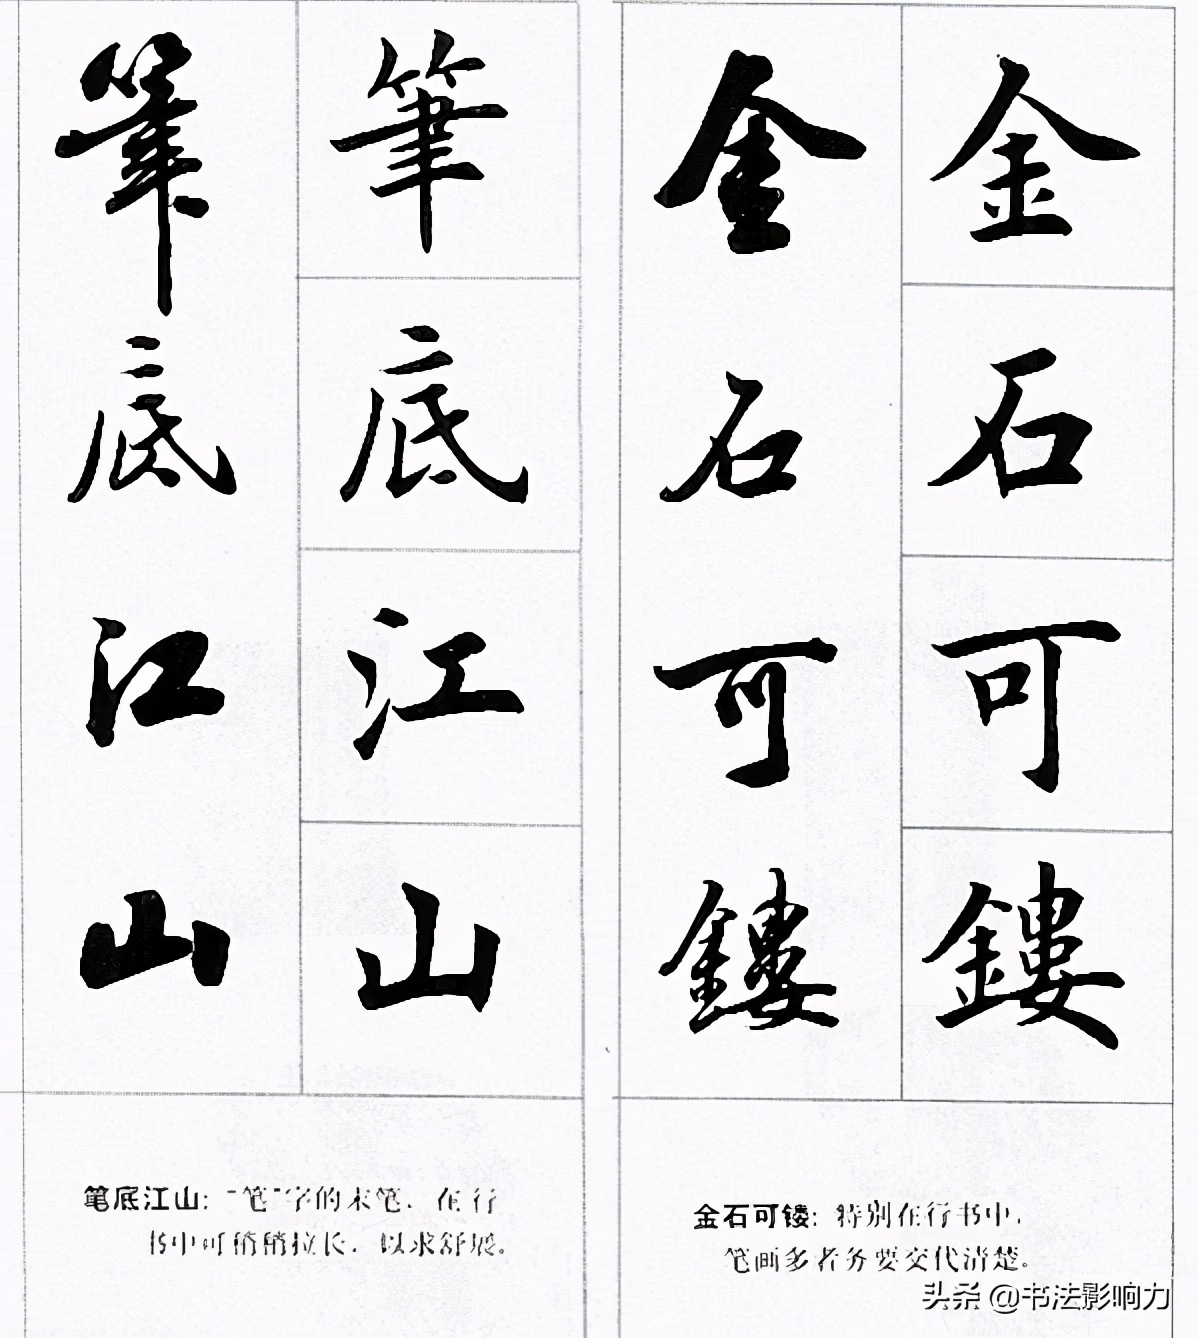 金石可鏤
金石可鏤
筆底江山
筆底江山
金石可镂：特别在行书中，
笔画多者务要交代清楚。
笔底江山：“笔”字的末笔，在行
书中可稍稍拉长，以求舒展。
头条 @书法影响力